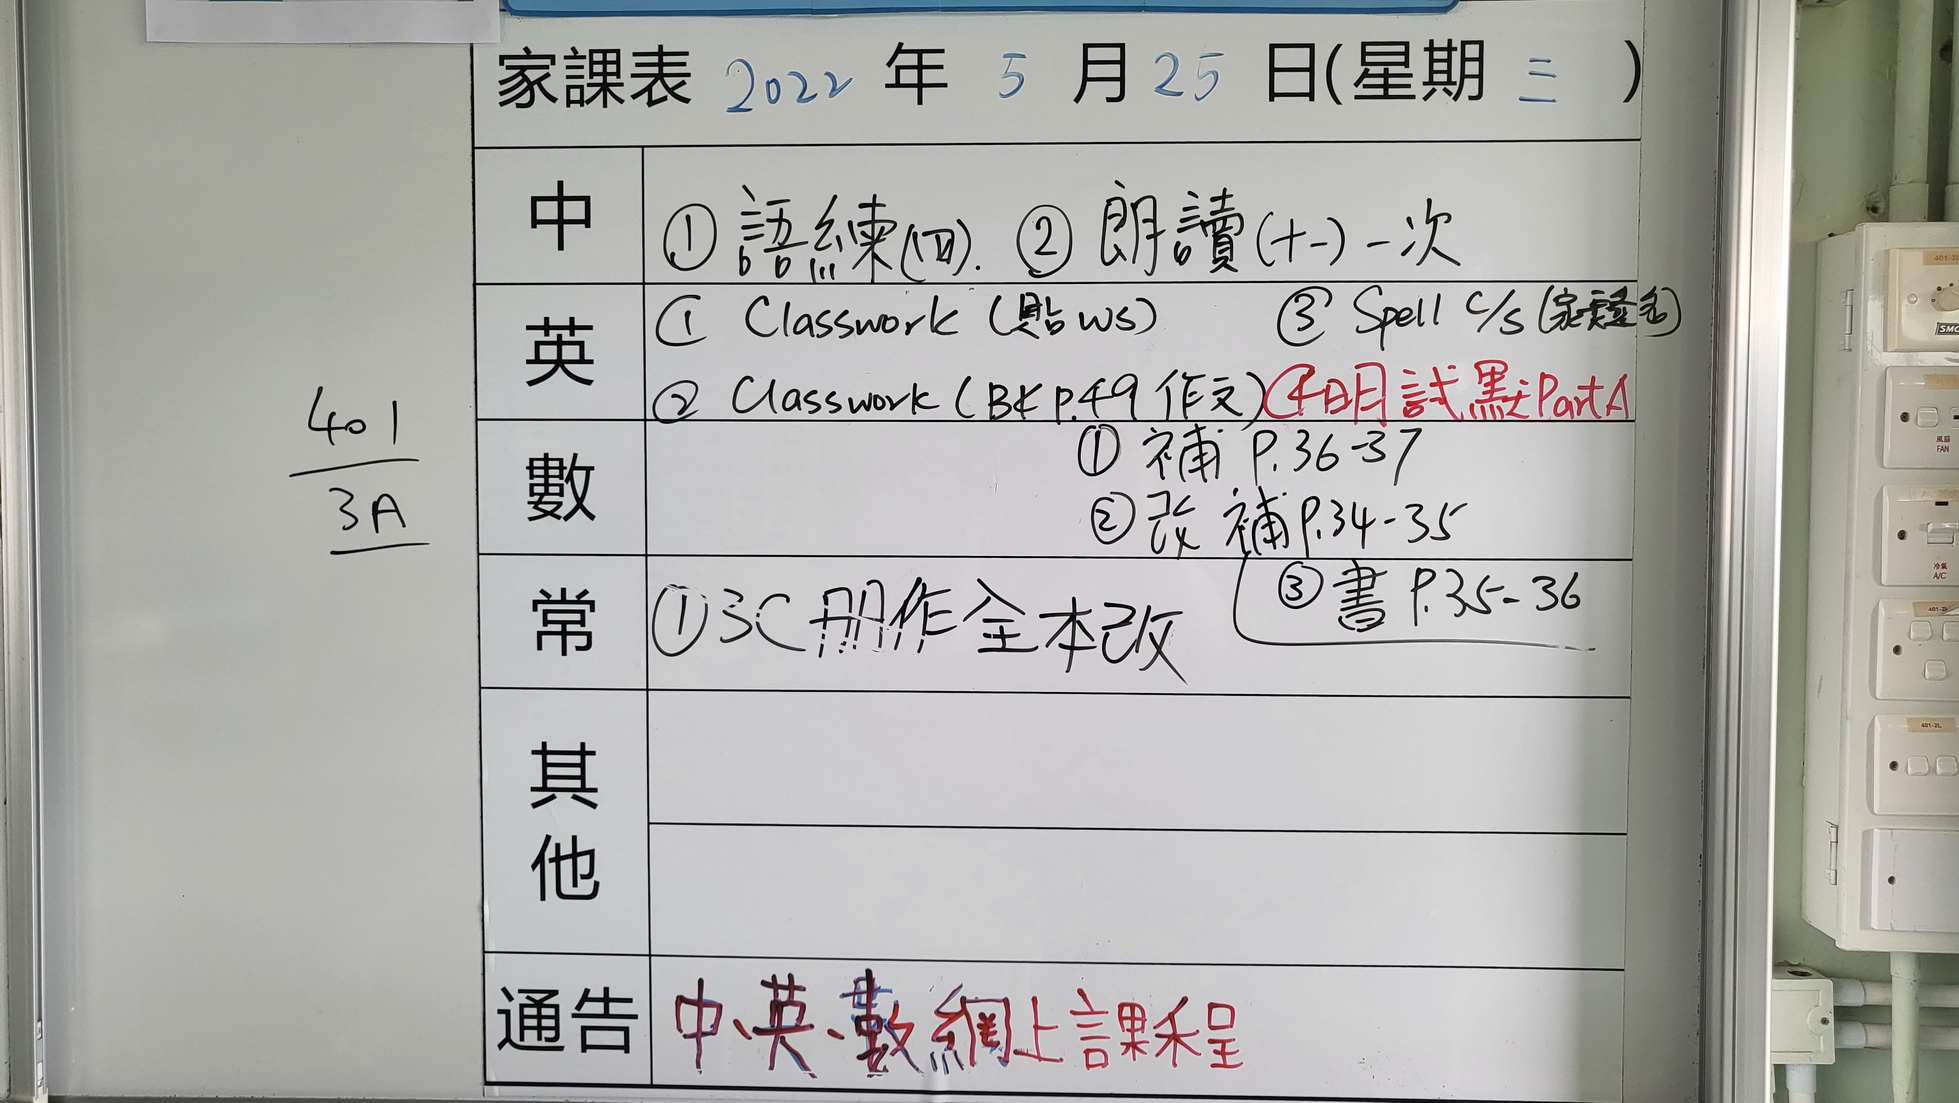 家課表 2022 年 5 月 25 日(星期 三 )
401
3A
中 ① 語練(四). ② 朗讀(十一)一次
英 ① Classwork (貼ws) ③ Spell c/s (家長簽名)
② Classwork (BK p.49 作文) ④明試默Part A
數 ① 補 P.36-37
② 改 補P.34-35
③ 書 P.35-36
常 ①3C 冊作全本改
其他
通告 中、英、數網上課程
風扇
FAN
冷氣
A/C
401-2L